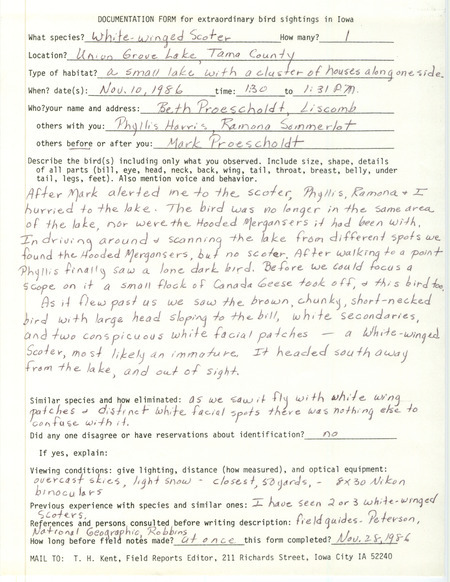 DOCUMENTATION FORM for extraordinary bird sightings in Iowa
What species? White-winged Scoter How many? 1
Location? Union Grove Lake, Tama County
Type of habitat? a small lake with a cluster of houses along one side.
When? date(s): Nov. 10, 1986 time: 1:30 to 1:31 P.M.
Who?your name and address: Beth Proescholdt, Liscomb
others with you: Phyllis Harris, Ramona Sommerlot
others before or after you: Mark Proescholdt
Describe the bird(s) including only what you observed. Include size, shape, details
of all parts (bill, eye, head, neck, back, wing, tail, throat, breast, belly, under
tail, legs, feet). Also mention voice and behavior.
After Mark alerted me to the scoter, Phyllis, Ramona & I
hurried to the lake. The bird was no longer in the same area
of the lake, nor were the Hooded Mergansers it had been with.
In driving around & scanning the lake from different spots we
found the Hooded Mergansers, but no scoter. After walking to a point
Phyllis finally saw a lone dark bird. Before we could focus a
scope on it a small flock of Canada Geese took off, & this bird too.
As it flew past us we saw the brown, chunky, short-necked
bird with large head sloping to the bill, white secondaries,
and two conspicuous white facial patches — a White-winged
Scoter, most likely an immature. It headed south away
from the lake, and out of sight.
Similar species and how eliminated: as we saw it fly with white wing
patches & distinct white facial spots there was nothing else to
confuse with it.
Did any one disagree or have reservations about identification? no
If yes, explain:
Viewing conditions: give lighting, distance (how measured), and optical equipment:
overcast skies, light snow - closest, 50 yards, - 8x30 Nikon
binoculars
Previous experience with species and similar ones: I have seen 2 or 3 white-winged
Scoters.
References and persons consulted before writing description: field guides- Peterson,
National Geographic, Robbins
How long before field notes made? at once this form completed? Nov. 28, 1986
MAIL TO: T. H. Kent, Field Reports Editor, 211 Richards Street, Iowa City IA 52240